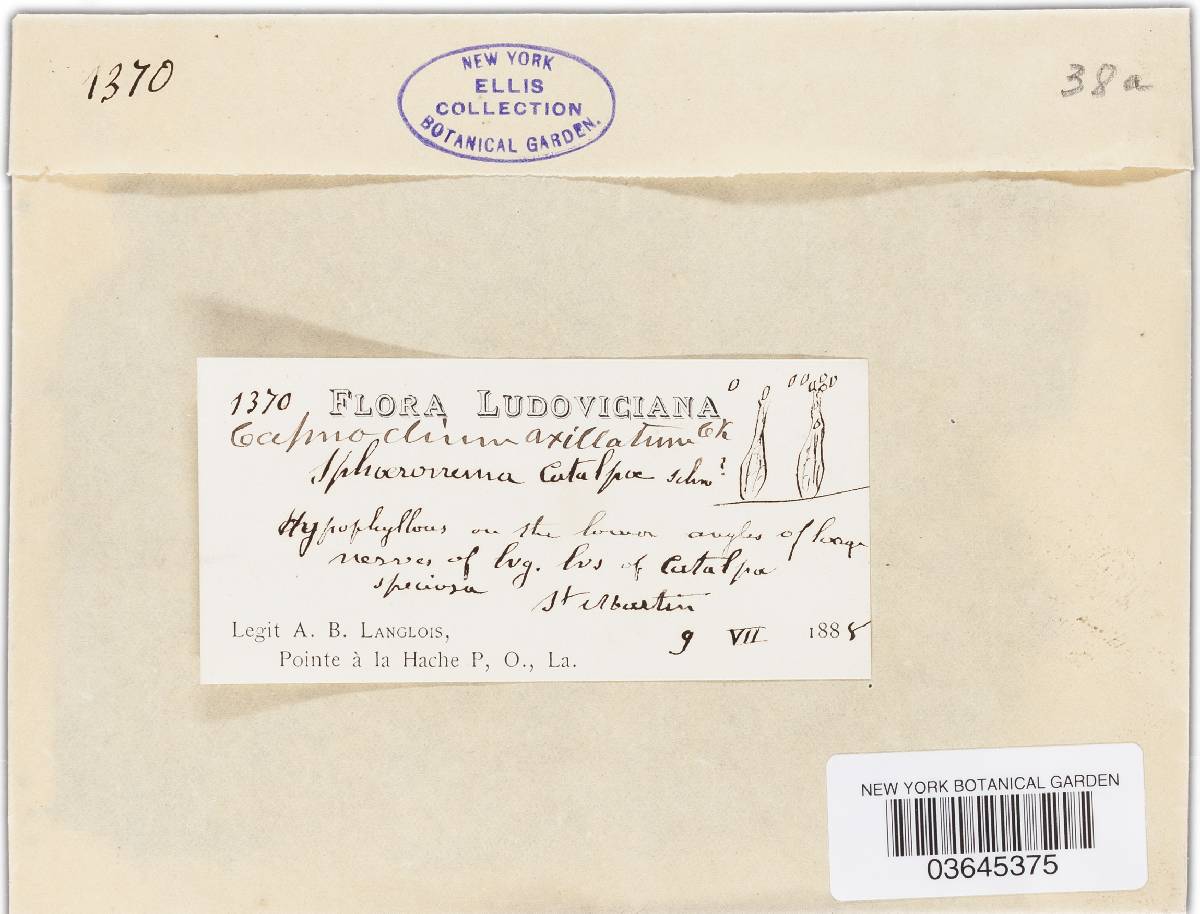 1370
NEW YORK
ELLIS
COLLECTION
BOTANICAL GARDEN.
38a
1370 FLORA LUDOVICIANA
Capnodium axillatum Ck
Sphaeronema Catalpae Schw ?
Hypophyllous on the lower angles of large
nerves of lvg. lvs of Catalpa
speciosa
St Martin
9 VII 1888
Legit A. B. LANGLOIS,
Pointe à la Hache P, O., La.
NEW YORK BOTANICAL GARDEN
03645375